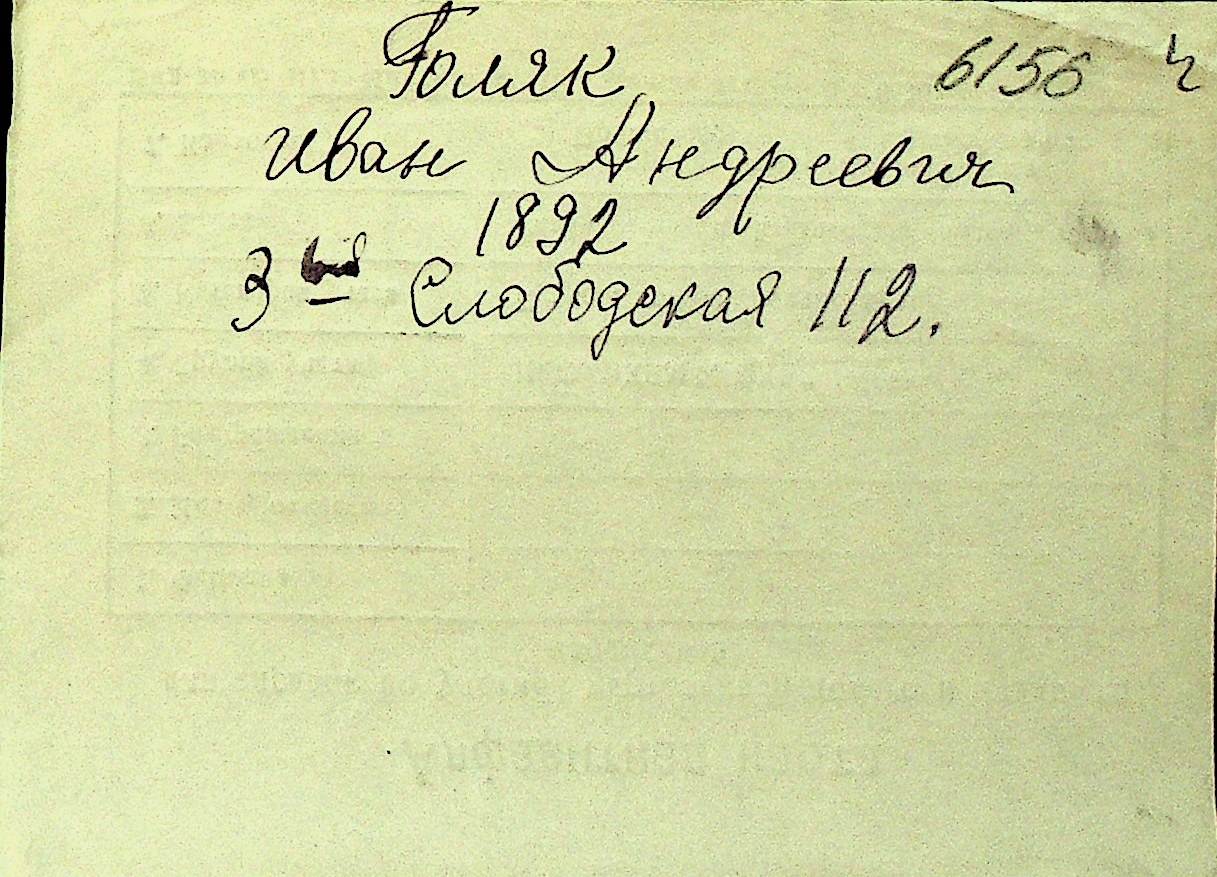 Голяк 6156 ч
Иван Андреевич
1892
3 ья Слободская 112.